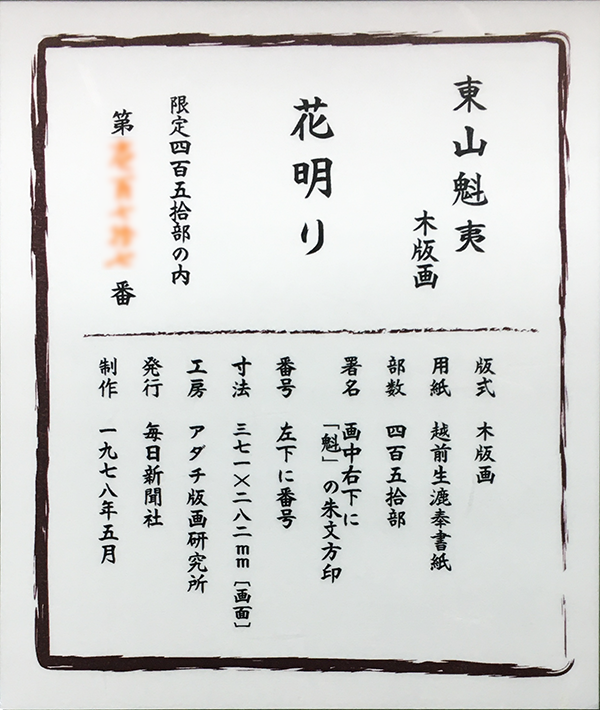 東山魁夷
木版画
花明り
限定四百五拾部の内
第 番
版式 木版画
用紙 越前生漉奉書紙
部数 四百五拾部
署名 画中右下に
「魁」の朱文方印
番号 左下に番号
寸法 三七一×二八二mm［画面］
工房 アダチ版画研究所
発行 毎日新聞社
制作 一九七八年五月